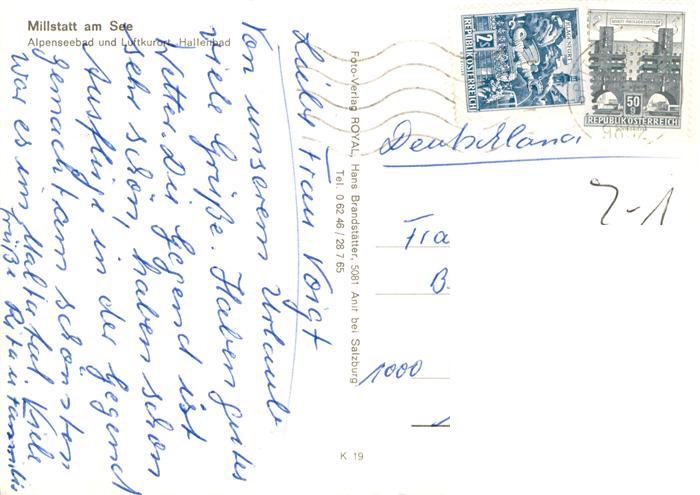 Millstatt am See
Alpenseebad und Luftkurort, Hallenbad
Liebe Frau Voigt
Von unserem Urlaub
viele Grüße. Haben gutes
Wetter. Die Gegend ist
sehr schön, haben schon
Ausflüge in der Gegend
gemacht am schönsten
war es im Maltatal Viele
Grüße Rita u Familie
Foto-Verlag ROYAL, Hans Brandstätter, 5081 Anif bei Salzburg
Tel. 0 62 46 / 28 7 65
K 19
2 S
REPUBLIK ÖSTERREICH
50 g
REPUBLIK ÖSTERREICH
Deutschland
Z-1
Fra
B
1000